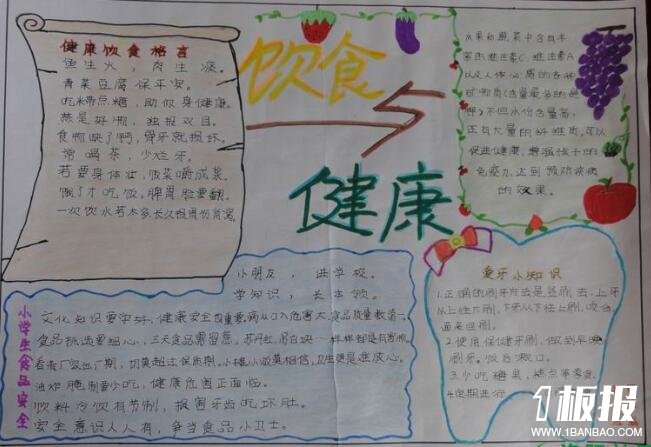 健康饮食格言
鱼生火，肉生痰。
青菜豆腐保平安。
吃米带点糠，助你身健康。
蒜是好物，独损双目。
食物缺了钙，骨牙就损坏。
常喝茶，少烂牙。
若要身体壮，饭菜嚼成浆。
饿了才吃饭，脾胃
一次饮水
饮食
与
健康
水果和蔬菜中含有丰
富的维生素C、维生素A
以及人体必需的各种
矿物质
不但水份含量高，
还有大量的纤维质，可以
促进健康，增强孩子的
免疫力，达到预防疾病
的效果。
小学生食品安全
小朋友，进学校。
学知识，长本领。
文化知识要学好，健康安全也重要，病从口入危害大，食品质量
食品挑选要细心，三无食品需留意，苏丹红，
看看厂家出厂期，切莫超过保质期。小摊小贩莫相信，卫生
油炸腌制要少吃，健康危害正面临。
饮料冷饮有节制，损害牙齿吃坏肚。
安全意识人人有，争当食品小卫士。
爱牙小知识
1.正确的刷牙方法是竖刷，上牙
从上往下刷，下牙从下往上刷，咬合
面来回刷。
2.使用保健牙刷，做到早晚
刷牙。饭后漱口。
3.少吃糖果，糕点等零食。
4.定期进行
1板报
WWW.1BANBAO.COM